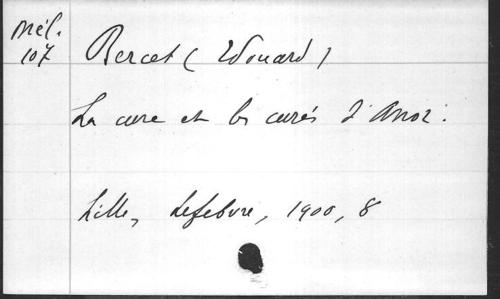 Mél.
107
Bercet (Edouard)
La cure et les curés d'Anor.
Lille, Lefebvre, 1900, 8